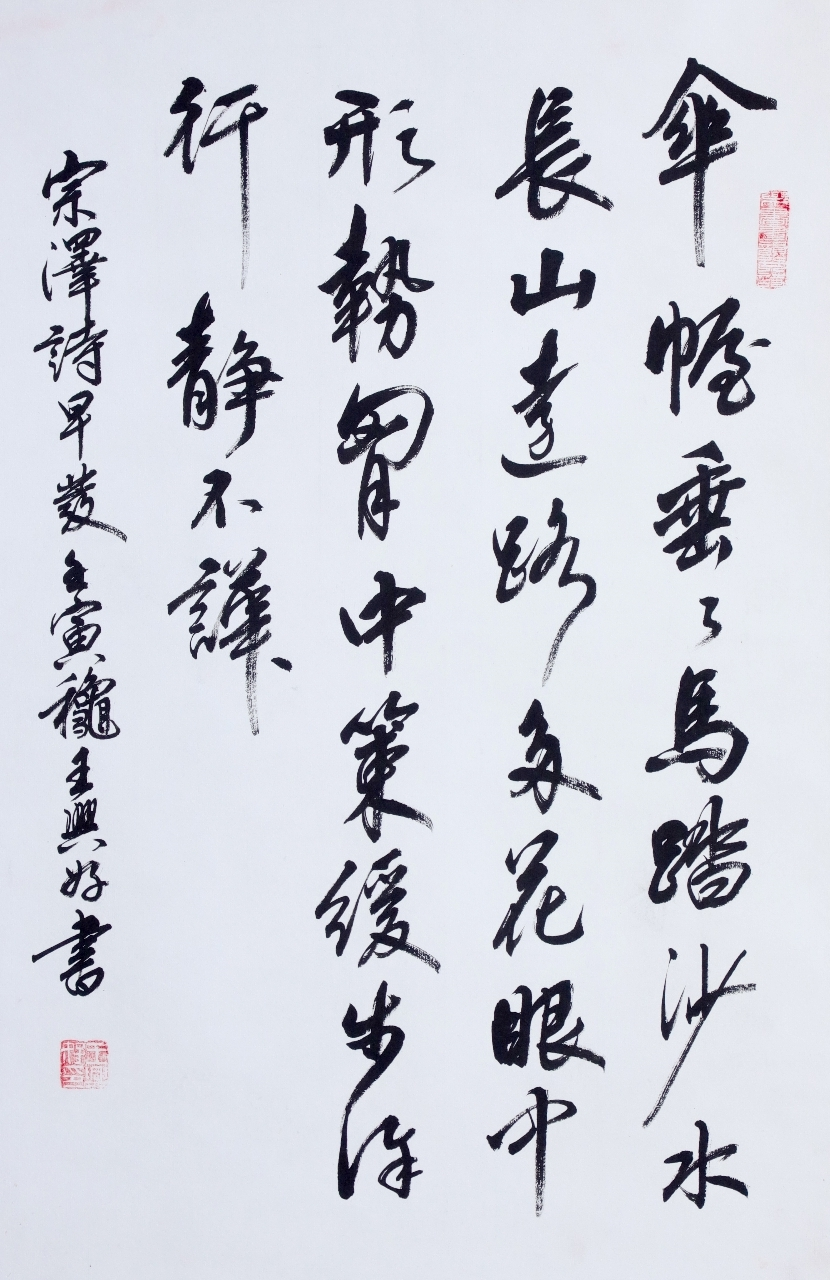 傘幄垂々馬踏沙水
長山遠路多花眼中
形勢胷中策緩步徐
行静不譁
宗澤詩早發壬寅穐王興好書